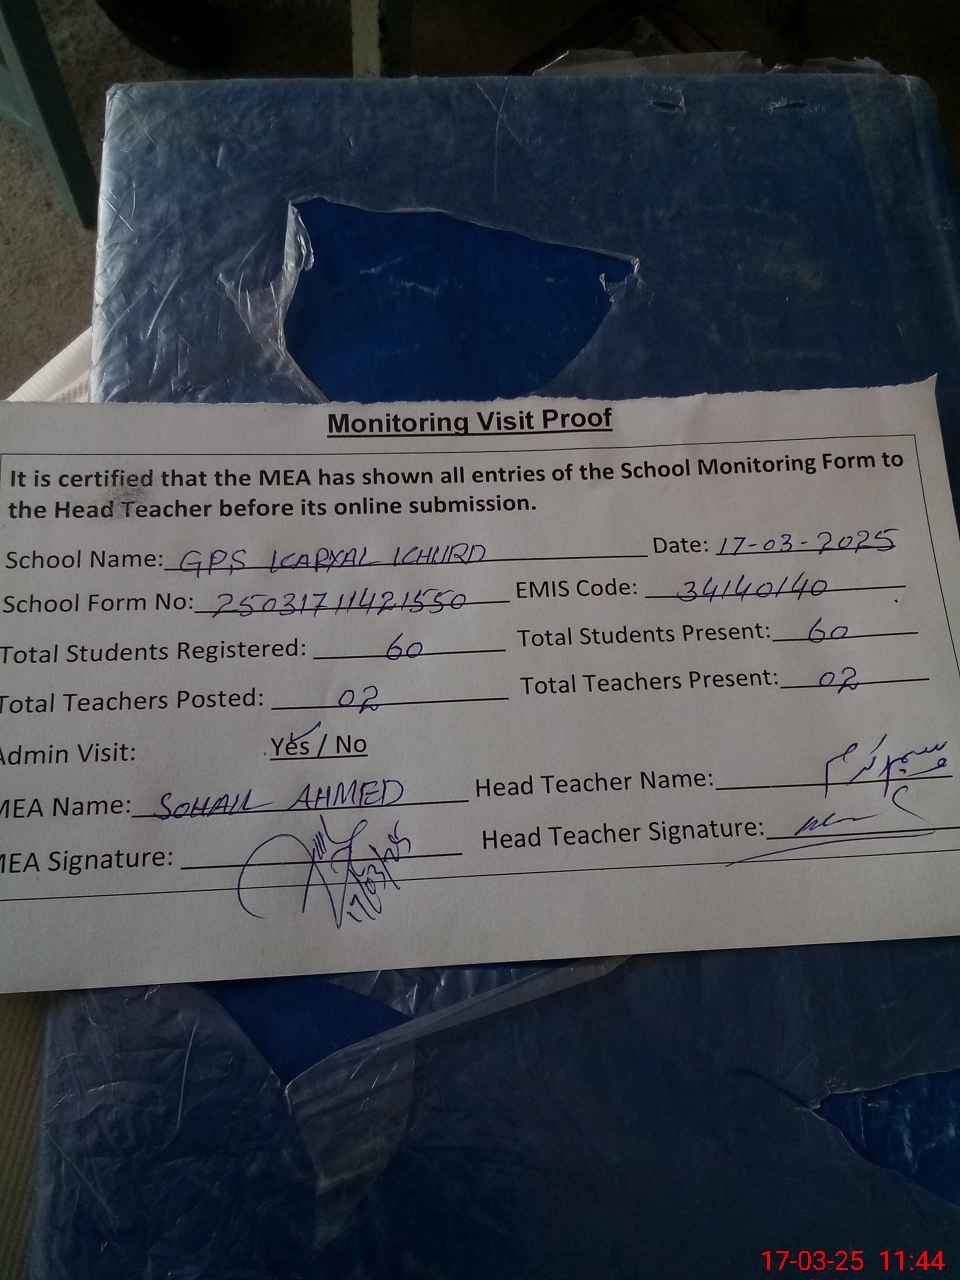 Monitoring Visit Proof
It is certified that the MEA has shown all entries of the School Monitoring Form to
the Head Teacher before its online submission.
School Name: GPS KARYAL KHURD Date: 17-03-2025
School Form No: 25031711421550 EMIS Code: 34140140
Total Students Registered: 60 Total Students Present: 60
Total Teachers Posted: 02 Total Teachers Present: 02
Admin Visit: Yes / No
MEA Name: SOHAIL AHMED Head Teacher Name:
MEA Signature: 17/03/25 Head Teacher Signature:
17-03-25 11:44